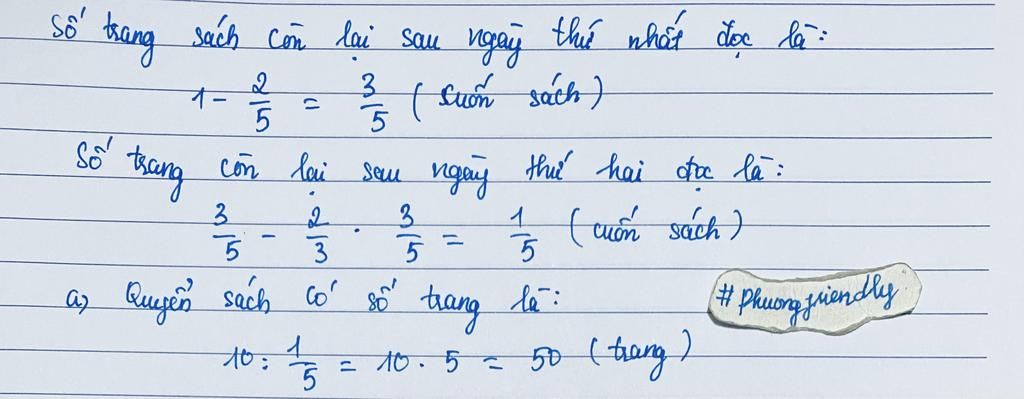 Số trang sách còn lại sau ngày thứ nhất đọc là:
1 - 2/5 = 3/5 (cuốn sách)
Số trang còn lại sau ngày thứ hai đọc là:
3/5 - 2/3 . 3/5 = 1/5 (cuốn sách)
a, Quyển sách có số trang là:
#phuongfriendly
10 : 1/5 = 10 . 5 = 50 (trang)